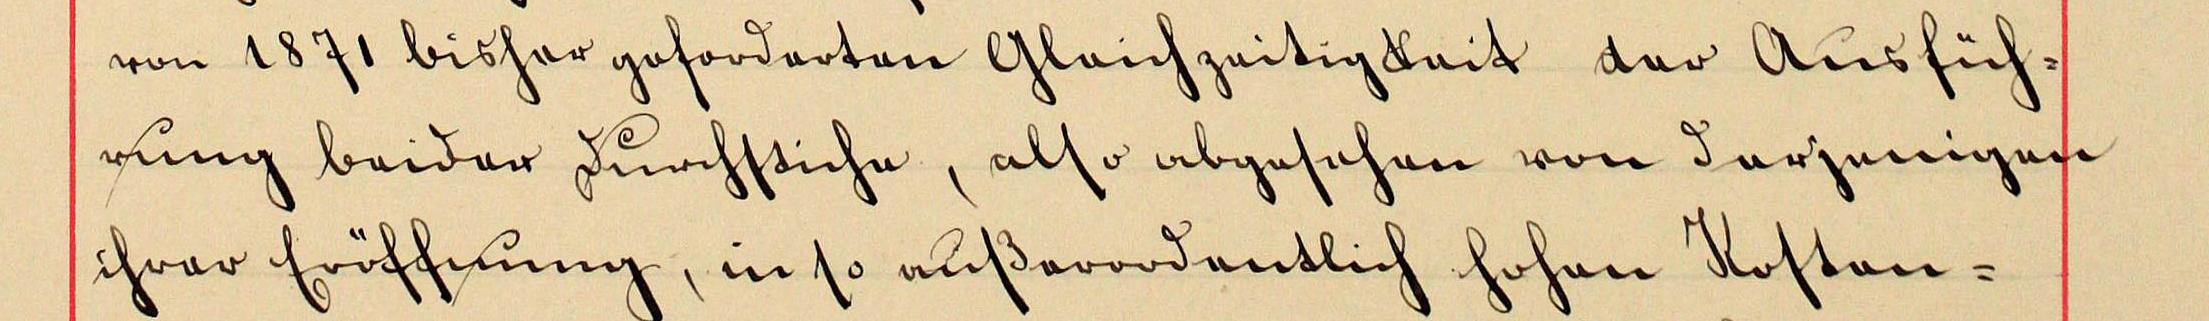 von 1871 bisher geforderten Gleichzeitigkeit der Ausfüh-
rung beider Durchstiche, also abgesehen von derjenigen
ihrer Eröffnung, in so außerordentlich hohen Kosten-